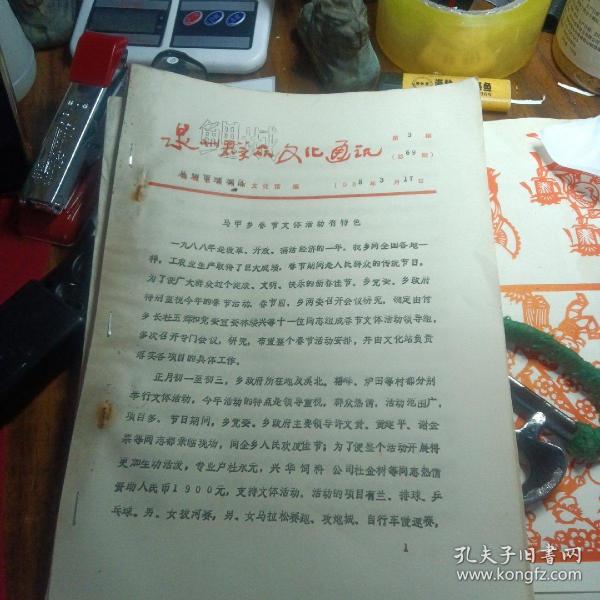 泉州群众文化通讯
第 3 期
(总 69 期)
文化馆 编
1988 年 3 月 17日
马甲乡春节文体活动有特色
一九八八年是改革、开放、搞活经济的一年。我乡同全国各地一
样，工农业生产取得了巨大成项，春节期间是人民群众的传统节日。
为了使广大群众过个健康、文明、快乐的新春佳节，乡党委、乡政府
特别重视今年的春节活动，春节前，乡两委召开会议研究，确定由付
乡长杜五辉和党委宣委林等十一位同志组成春节文体活动领导组，
多次召开专门会议，研究，布置整个春节活动安排，并由文化站负责
落实各项目的具体工作。
正月初一至初三，乡政府所在地及溪北、梧峰、炉田等村都分别
举行文体活动，今年活动的特点是领导重视，群众热情，活动范围广，
项目多。节日期间，乡党委、乡政府主要领导许文黄、黄建平、谢金
票等同志都亲临现场，同全乡人民欢度佳节；为了使整个活动开展得
更加生动活泼，专业户杜永元，兴华饲料公司杜金树等同志热情
赞助人民币1900元，支持文体活动。活动的项目有兰、排球、乒
乓球、男、女拔河赛，男、女马拉松赛跑、攻炮城、自行车慢速赛，
1
孔夫子旧书网
www.kongfz.com